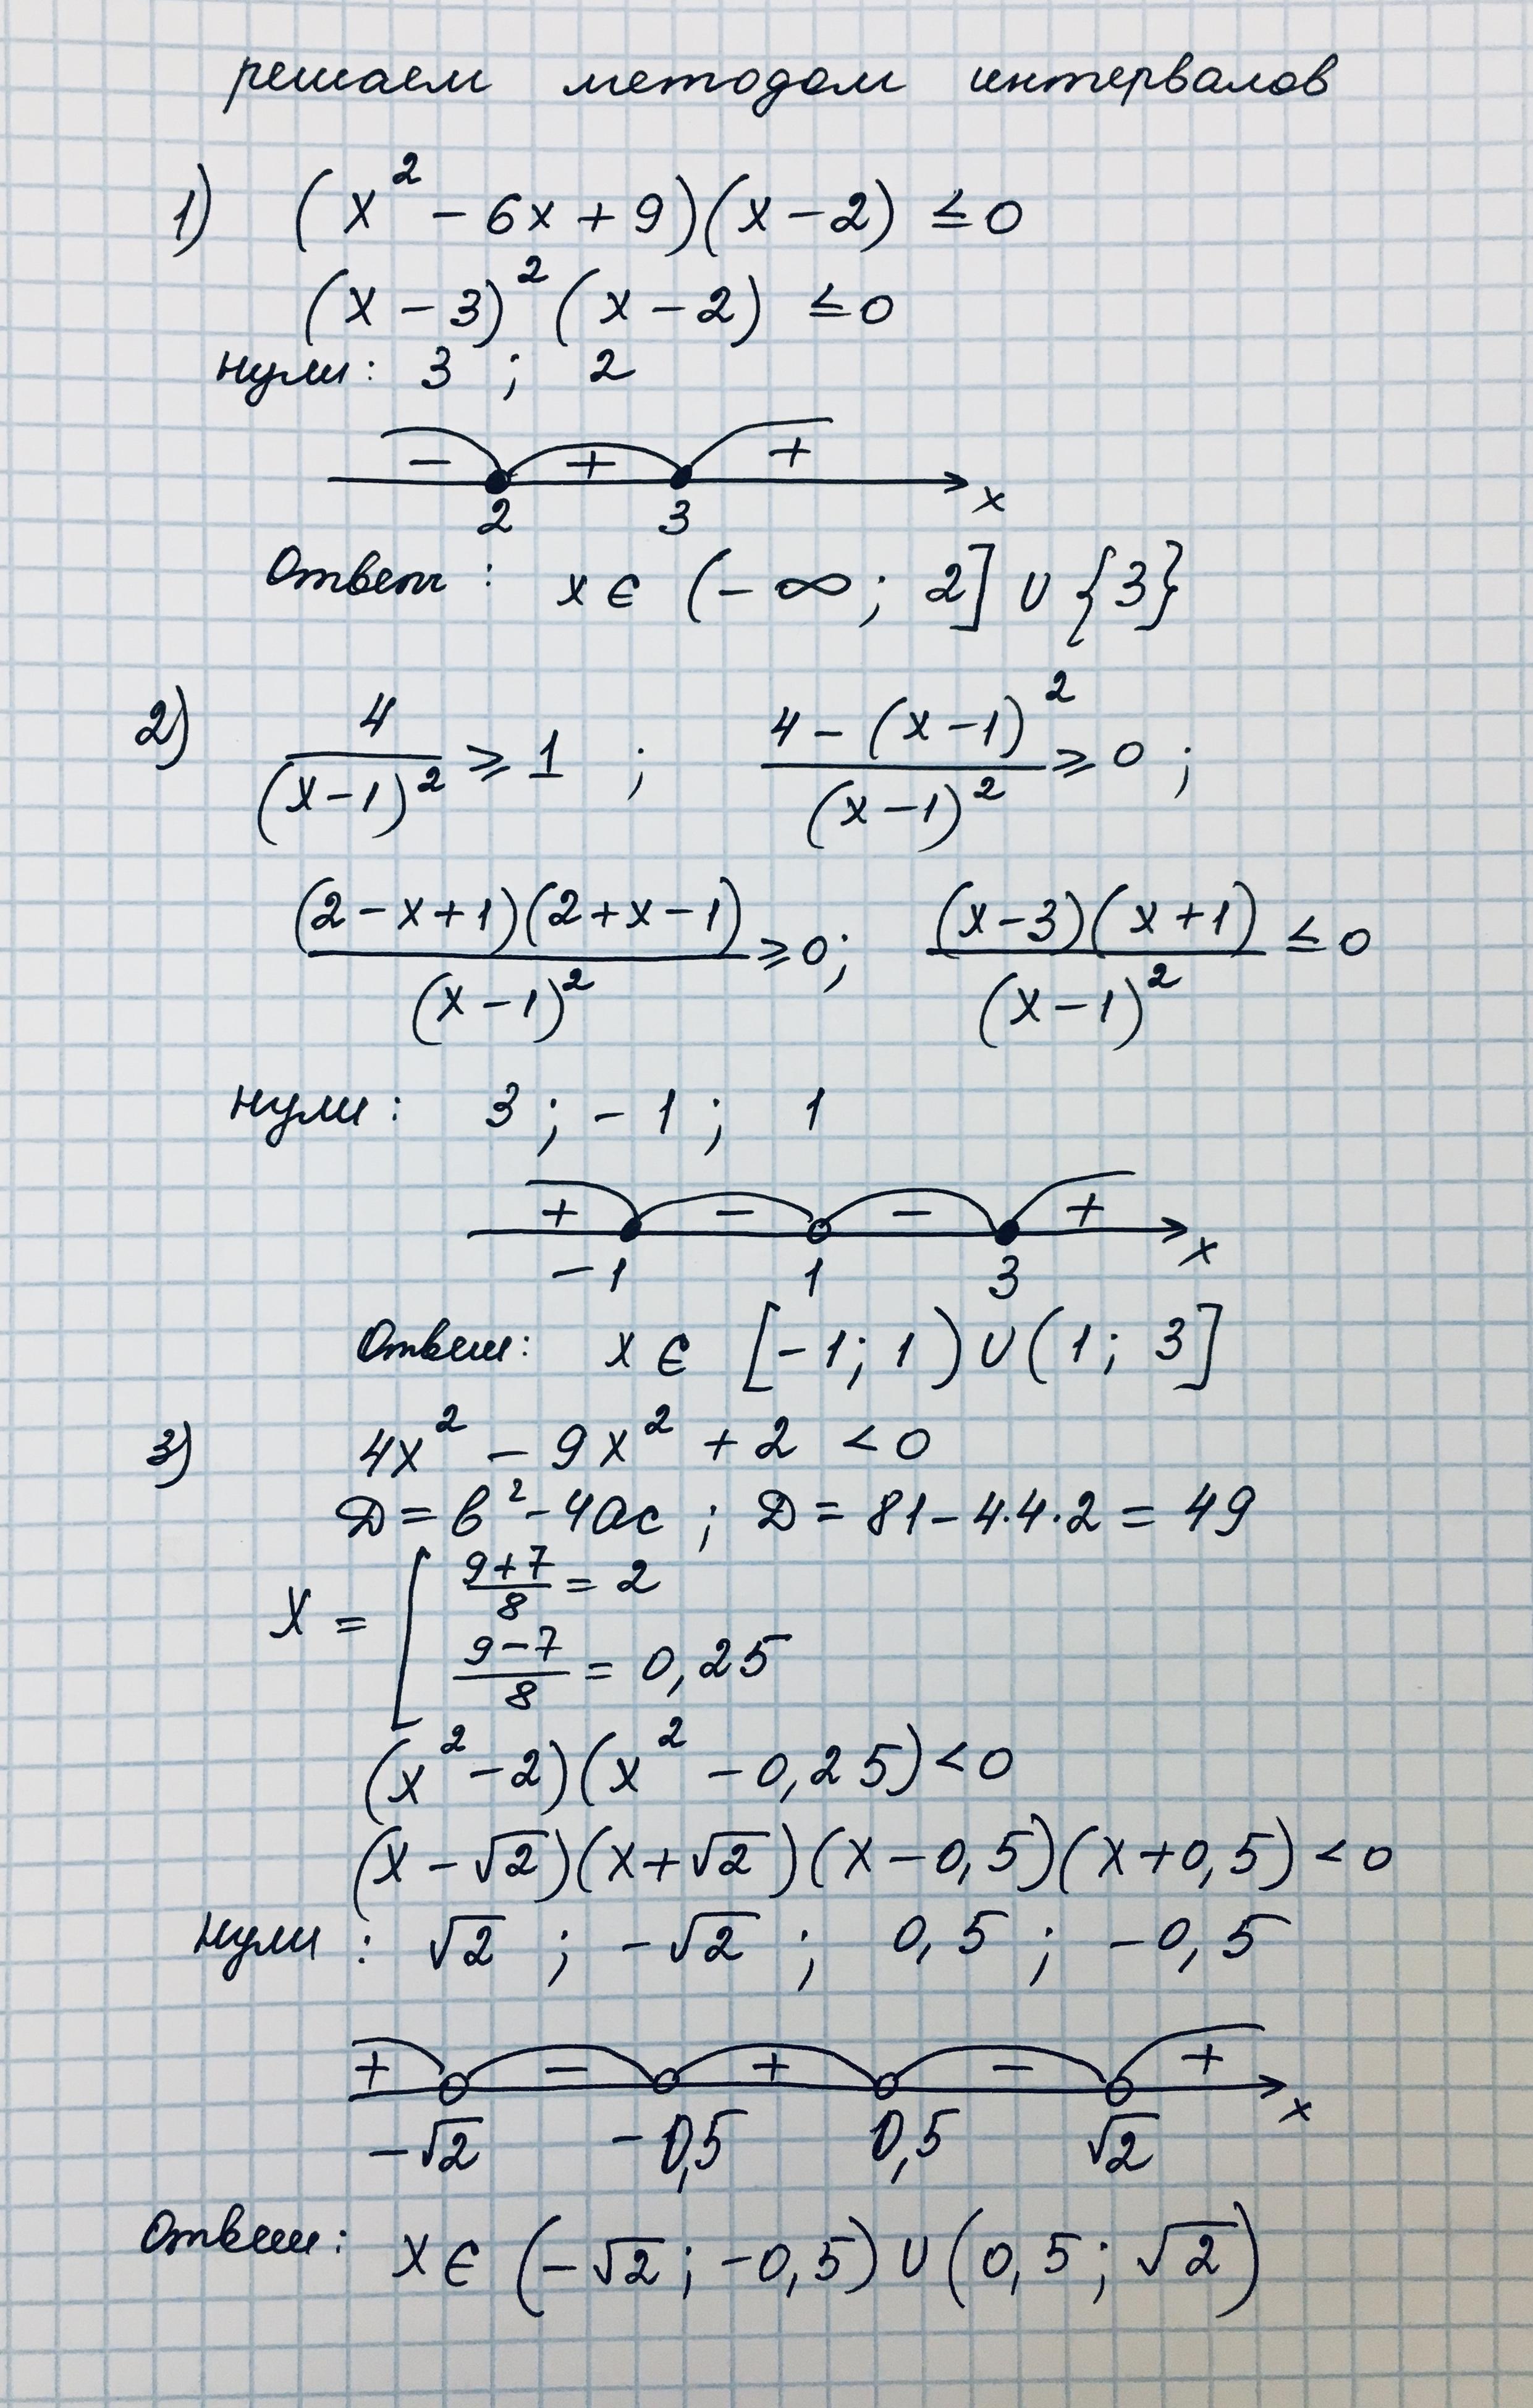 решаем методом интервалов
1) (x² - 6x + 9)(x - 2) ≤ 0
(x - 3)² (x - 2) ≤ 0
нули: 3 ; 2
- + +
2 3 x
Ответ: x ∈ (-∞; 2] ∪ {3}
2) 4/(x-1)² ⩾ 1 ; (4 - (x-1)²)/(x-1)² ⩾ 0 ;
((2-x+1)(2+x-1))/(x-1)² ⩾ 0; ((x-3)(x+1))/(x-1)² ≤ 0
нули: 3 ; -1 ; 1
+ - - +
-1 1 3 x
Ответ: x ∈ [-1; 1) ∪ (1; 3]
3) 4x² - 9x² + 2 < 0
D = b² - 4ac ; D = 81 - 4·4·2 = 49
x = [ (9+7)/8 = 2
(9-7)/8 = 0,25
(x² - 2)(x² - 0,25) < 0
(x - √2)(x + √2)(x - 0,5)(x + 0,5) < 0
нули : √2 ; -√2 ; 0,5 ; -0,5
+ - + - +
-√2 -0,5 0,5 √2 x
Ответ: x ∈ (-√2; -0,5) ∪ (0,5; √2)